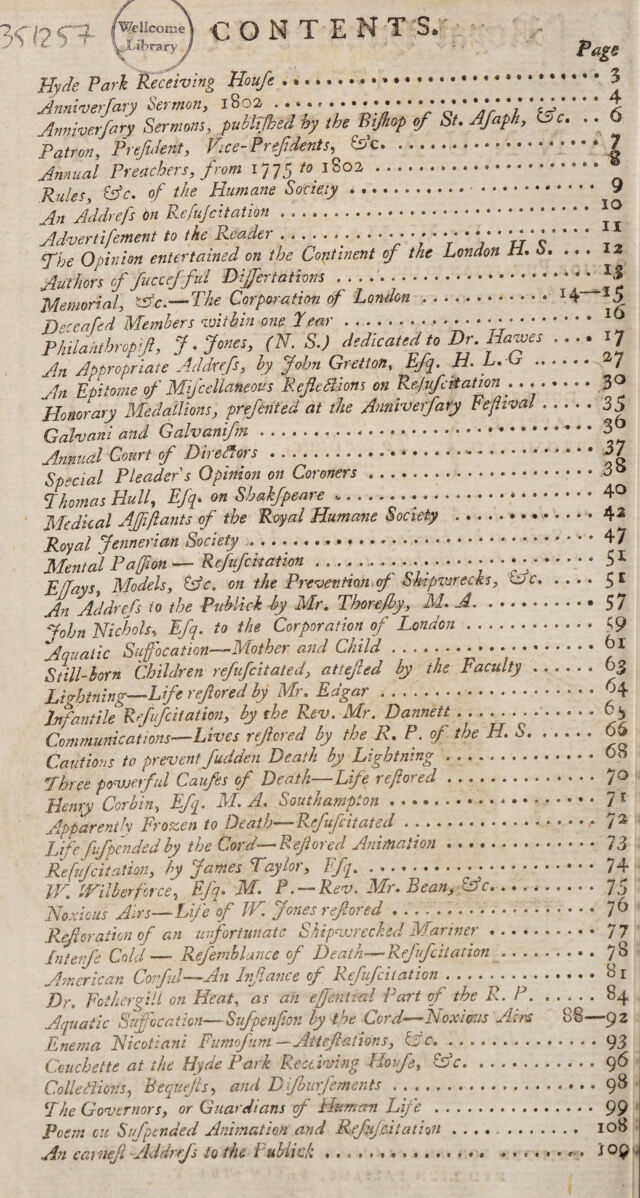 351257
Wellcome
Library
CONTENTS.
Page
Hyde Park Receiving Houſe .......... 3
Anniverſary Sermon, 1802 .......... 4
Anniverſary Sermons, publiſhed by the Biſhop of St. Aſaph, &c. .. 6
Patron, Preſident, Vice-Preſidents, &c. .......... 7
Annual Preachers, from 1775 to 1802 .......... 8
Rules, &c. of the Humane Society .......... 9
An Addreſs on Reſuſcitation .......... 10
Advertiſement to the Reader .......... 11
The Opinion entertained on the Continent of the London H. S. ... 12
Authors of ſucceſful Diſſertations .......... 13
Memorial, &c.—The Corporation of London .......... 14—15
Deceaſed Members within one Year .......... 16
Philanthropiſt, J. Jones, (N. S.) dedicated to Dr. Hawes .... 17
An Appropriate Addreſs, by John Gretton, Eſq. H. L.G ...... 27
An Epitome of Miſcellaneous Reflections on Reſuſcitation ........ 30
Honorary Medallions, preſented at the Anniverſary Feſtival ..... 35
Galvani and Galvaniſm .......... 36
Annual Court of Directors .......... 37
Special Pleader's Opinion on Coroners .......... 38
Thomas Hull, Eſq. on Shakſpeare .......... 40
Medical Aſſiſtants of the Royal Humane Society .......... 42
Royal Jennerian Society .......... 47
Mental Paſſion — Reſuſcitation .......... 51
Eſſays, Models, &c. on the Prevention of Shipwrecks, &c. .... 51
An Addreſs to the Publick by Mr. Thoreſby, M. A. .......... 57
John Nichols, Eſq. to the Corporation of London .......... 59
Aquatic Suffocation—Mother and Child .......... 61
Still-born Children reſuſcitated, atteſted by the Faculty ...... 63
Lightning—Life reſtored by Mr. Edgar .......... 64
Infantile Reſuſcitation, by the Rev. Mr. Dannett .......... 65
Communications—Lives reſtored by the R. P. of the H. S. ...... 66
Cautions to prevent ſudden Death by Lightning .......... 68
Three powerful Cauſes of Death—Life reſtored .......... 70
Henry Corbin, Eſq. M. A. Southampton .......... 71
Apparently Frozen to Death—Reſuſcitated .......... 72
Life ſuſpended by the Cord—Reſtored Animation .......... 73
Reſuſcitation, by James Taylor, Eſq. .......... 74
W. Wilberforce, Eſq. M. P.—Rev. Mr. Bean, &c. .......... 75
Noxious Airs—Life of W. Jones reſtored .......... 76
Reſtoration of an unfortunate Shipwrecked Mariner .......... 77
Intenſe Cold — Reſemblance of Death—Reſuſcitation .......... 78
American Conſul—An Inſtance of Reſuſcitation .......... 81
Dr. Fothergill on Heat, as an eſſential Part of the R. P. ...... 84
Aquatic Suffocation—Suſpenſion by the Cord—Noxious Airs 88—92
Enema Nicotiani Fumoſum—Atteſtations, &c. .......... 93
Couchette at the Hyde Park Receiving Houſe, &c. .......... 96
Collections, Bequeſts, and Diſburſements .......... 98
The Governors, or Guardians of Human Life .......... 99
Poem ou Suſpended Animation and Reſuſcitation .......... 108
An earneſt Addreſs to the Publick .......... 109